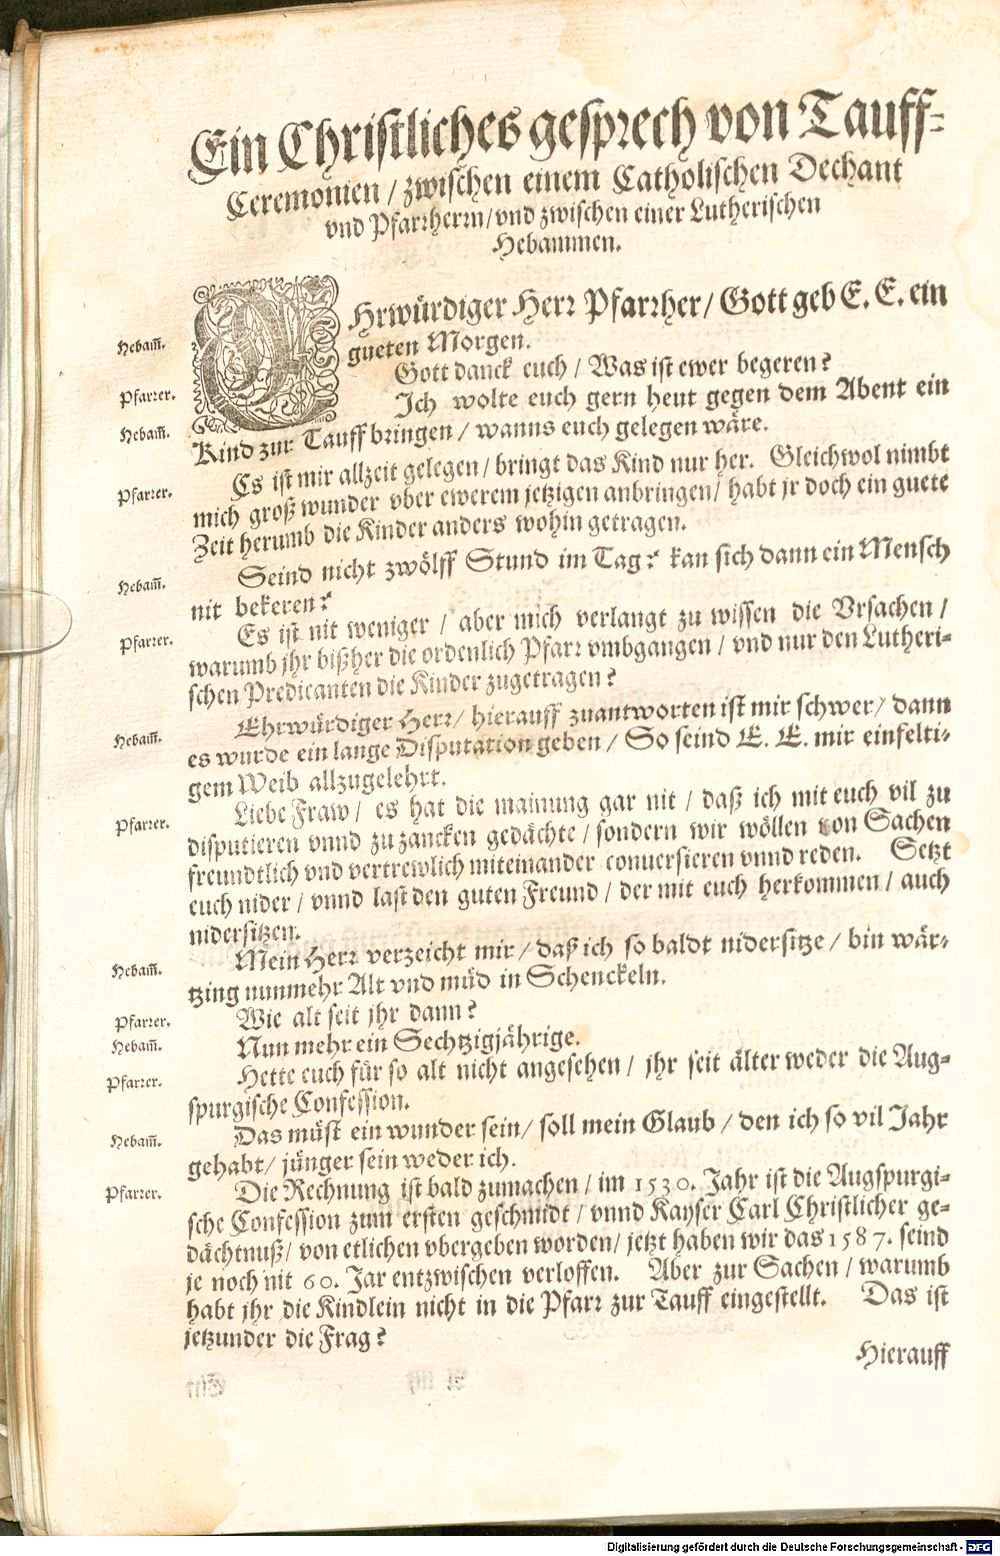 Ein Christliches gesprech von Tauff-
Ceremonien / zwischen einem Catholischen Dechant
vnd Pfarrherrn / vnd zwischen einer Lutherischen
Hebammen.
Hebam̃.
EHrwürdiger Herr Pfarrher / Gott geb E. E. ein
gueten Morgen.
Pfarrer.
Gott danck euch / Was ist ewer begeren?
Hebam̃.
Ich wolte euch gern heut gegen dem Abent ein
Kind zur Tauff bringen / wanns euch gelegen wäre.
Pfarrer.
Es ist mir allzeit gelegen / bringt das Kind nur her. Gleichwol nimbt
mich groß wunder vber ewerem jetzigen anbringen / habt jr doch ein guete
Zeit herumb die Kinder anders wohin getragen.
Hebam̃.
Seind nicht zwölff Stund im Tag? kan sich dann ein Mensch
nit bekeren?
Pfarrer.
Es ist nit weniger / aber mich verlangt zu wissen die Vrsachen /
warumb jhr bißher die ordenlich Pfarr vmbgangen / vnd nur den Lutheri-
schen Predicanten die Kinder zugetragen?
Hebam̃.
Ehrwürdiger Herr / hierauff zuantworten ist mir schwer / dann
es wurde ein lange Disputation geben / So seind E. E. mir einfelti-
gem Weib allzugelehrt.
Pfarrer.
Liebe Fraw / es hat die mainung gar nit / daß ich mit euch vil zu
disputieren vnnd zu zancken gedächte / sondern wir wöllen von Sachen
freundtlich vnd vertrewlich miteinander conuersieren vnnd reden. Setzt
euch nider / vnnd last den guten Freund / der mit euch herkommen / auch
nidersitzen.
Hebam̃.
Mein Herr verzeicht mir / daß ich so baldt nidersitze / bin wär-
tzing nunmehr Alt vnd müd in Schenckeln.
Pfarrer.
Wie alt seit jhr dann?
Hebam̃.
Nun mehr ein Sechtzigjährige.
Pfarrer.
Hette euch für so alt nicht angesehen / jhr seit älter weder die Aug-
spurgische Confession.
Hebam̃.
Das müst ein wunder sein / soll mein Glaub / den ich so vil Jahr
gehabt / jünger sein weder ich.
Pfarrer.
Die Rechnung ist bald zumachen / im 1530. Jahr ist die Augspurgi-
sche Confession zum ersten geschmidt / vnnd Kayser Carl Christlicher ge-
dächtnuß / von etlichen vbergeben worden / jetzt haben wir das 1587. seind
je noch nit 60. Jar entzwischen verloffen. Aber zur Sachen / warumb
habt jhr die Kindlein nicht in die Pfarr zur Tauff eingestellt. Das ist
jetzunder die Frag?
Hierauff
Digitalisierung gefördert durch die Deutsche Forschungsgemeinschaft - DFG